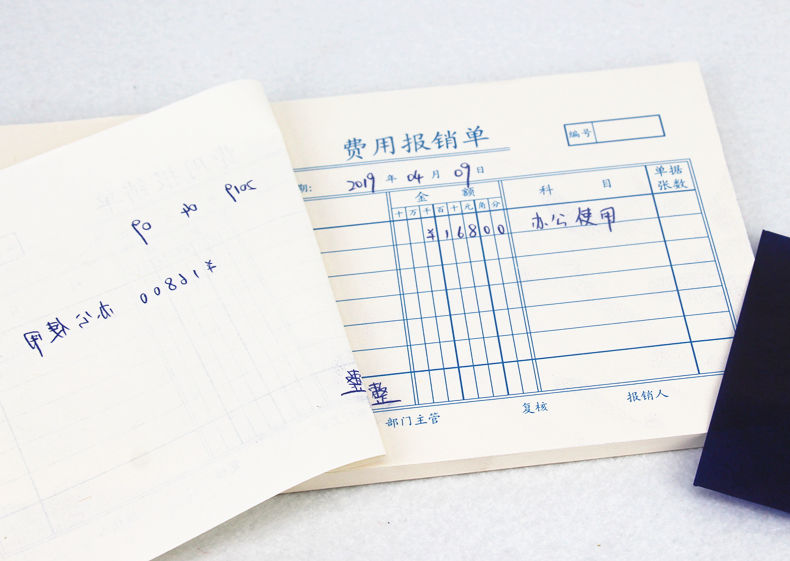 费用报销单
编号
期: 2019 年 04 月 09 日
金 额
科 目
单据张数
十 万 千 百 十 元 角 分
¥16800 办公使用
整
部门主管 复核 报销人
2019 04 09
¥16800 办公使用